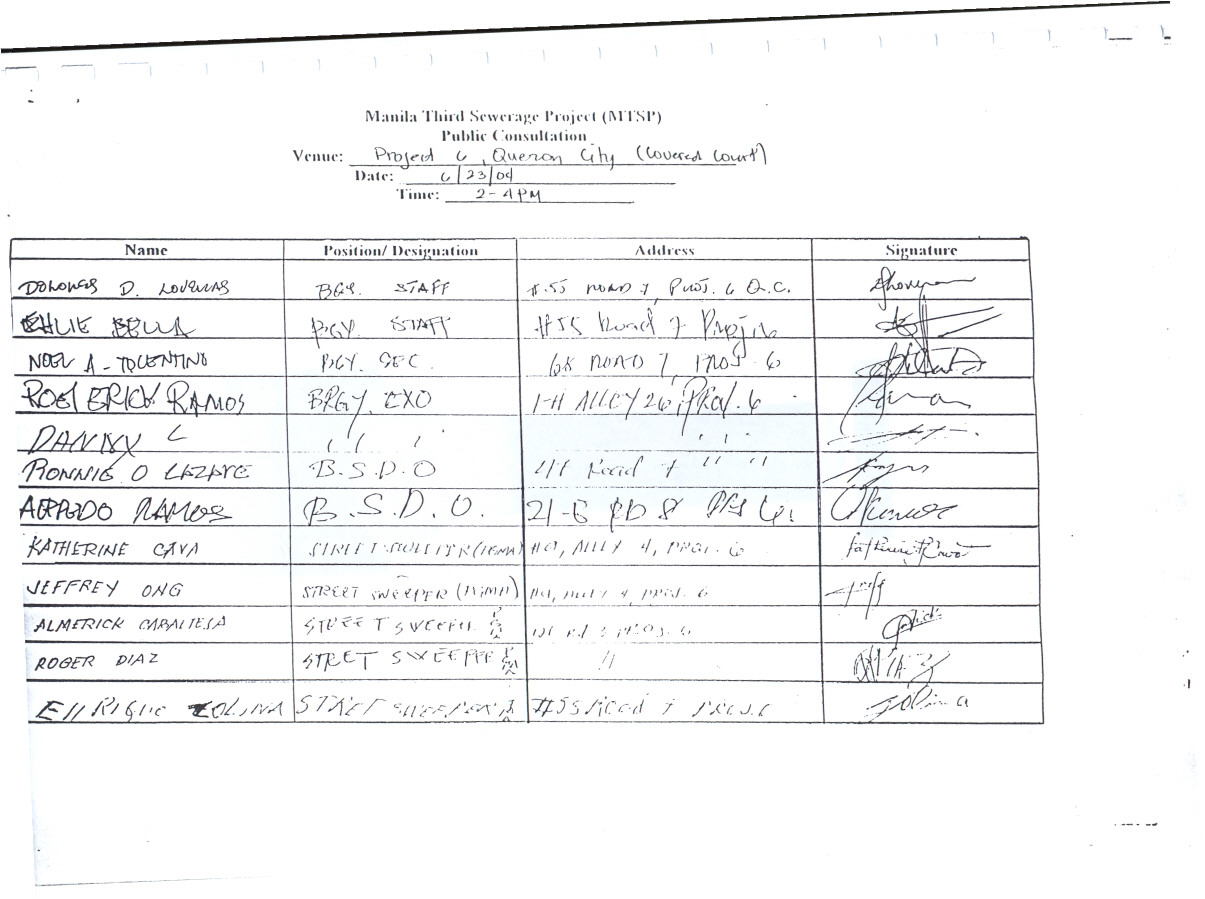 Manila Third Sewerage Project (MTSP)
Public Consultation
Venue: Project 6, Quezon City (Covered Court)
Date: 6/23/04
Time: 2-4PM
Name Position/ Designation Address Signature
D. BGY. STAFF #.55 ROAD 7, PROJ. 6 Q.C.
BELLA BGY STAFF #55 Road 7 Proj 6
NOEL A - TOLENTINO BGY. SEC. ROAD 7, PROJ. 6
ROEL ERICK RAMOS BRGY. EXO 1-H ALLEY 26, PROJ. 6
DANNY L " " " " "
RONNIE O LAZARE B.S.D.O Road 7 " "
ALFREDO RAMOS B.S.D.O. 21-B RD 8 PRJ 6.
KATHERINE CAVA STREET SWEEPER ALLEY 4, PROJ. 6
JEFFREY ONG STREET SWEEPER ALLEY 4, PROJ. 6
ALMERICK STREET SWEEPER PROJ. 6
ROGER DIAZ STREET SWEEPER "
ENRIQUE ZOLINA STREET SWEEPER #55 Road 7 PROJ. 6